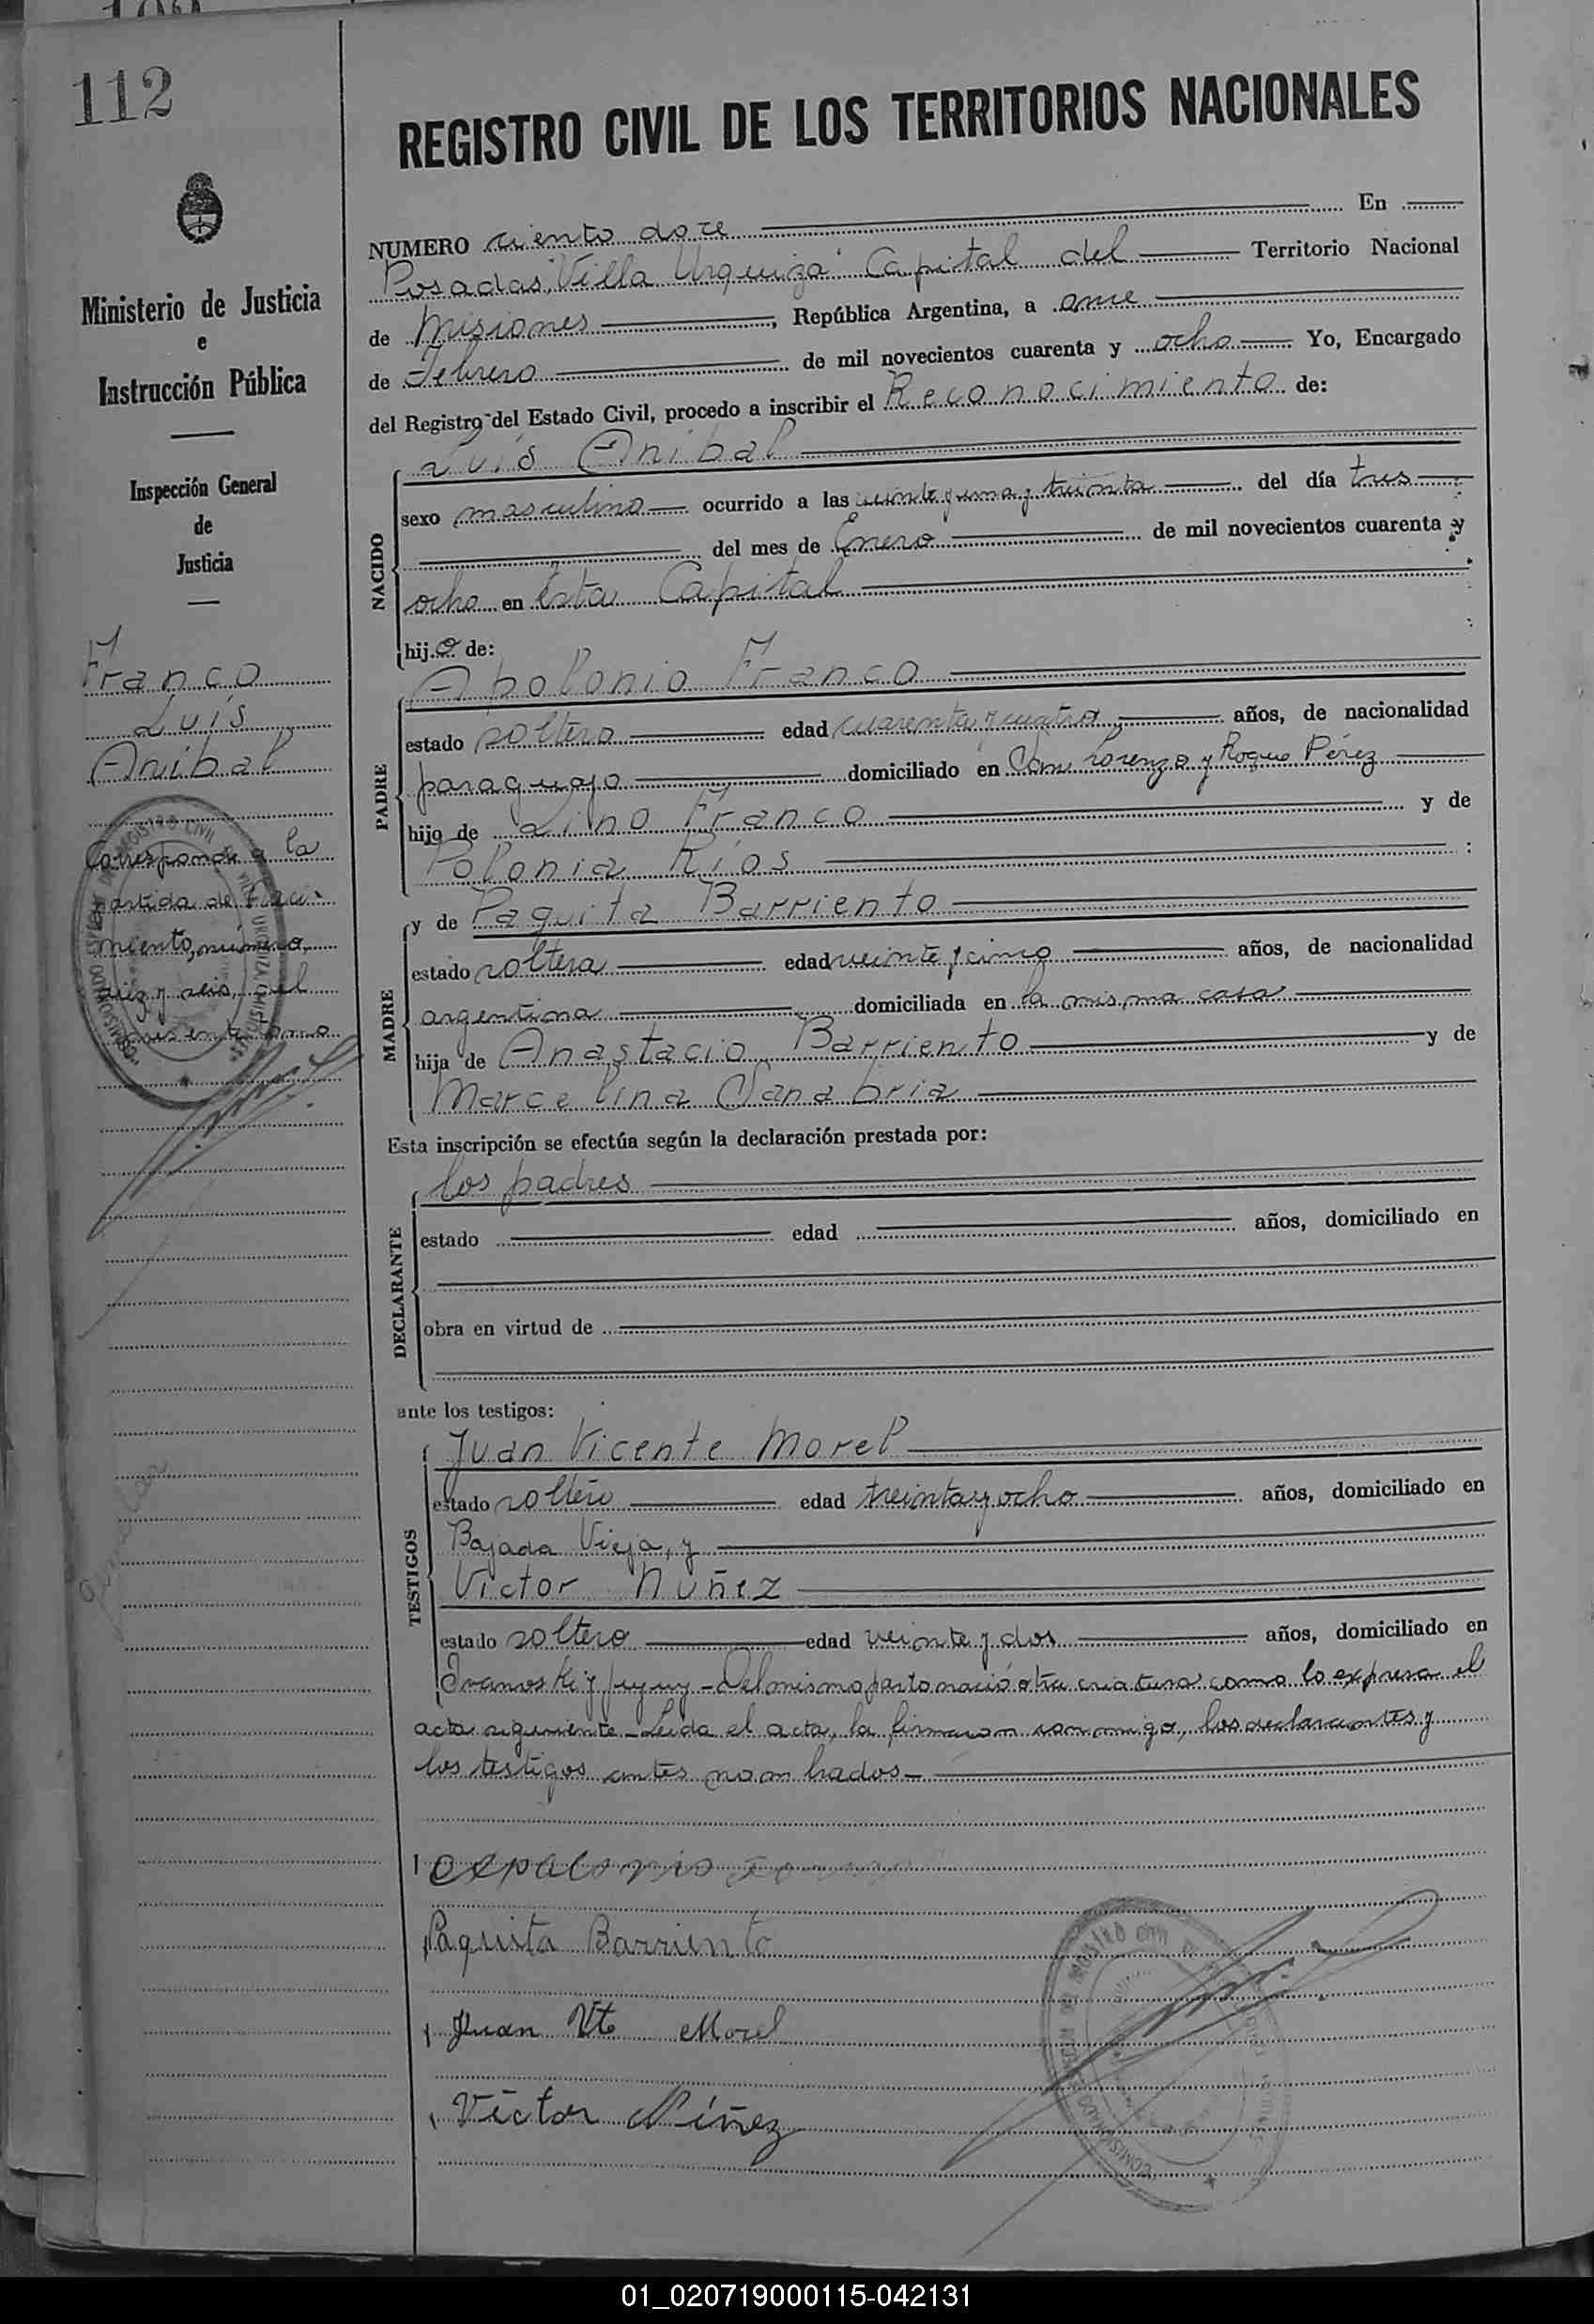 112
REGISTRO CIVIL DE LOS TERRITORIOS NACIONALES
Ministerio de Justicia
e
Instrucción Pública
Inspección General
de
Justicia
Franco
Luís
Anibal
Corresponde a la
partida de Naci-
miento, número,
diez y seis, del
presente tomo
NUMERO ciento doce En
Posadas, "Villa Urquiza" Capital del Territorio Nacional
de Misiones, República Argentina, a once
de Febrero de mil novecientos cuarenta y ocho Yo, Encargado
del Registro del Estado Civil, procedo a inscribir el Reconocimiento de:
NACIDO
Luís Anibal
sexo masculino ocurrido a las veinte y una y treinta del día tres
del mes de Enero de mil novecientos cuarenta y
ocho en esta Capital
hijo de:
PADRE
Apolonio Franco
estado soltero edad cuarenta y cuatro años, de nacionalidad
paraguayo domiciliado en San Lorenzo y Roque Pérez
hijo de Lino Franco y de
Polonia Ríos
MADRE
y de Paquita Barriento
estado soltera edad veinte y cinco años, de nacionalidad
argentina domiciliada en la misma casa
hija de Anastacio Barriento y de
Marcelina Sanabria
Esta inscripción se efectúa según la declaración prestada por:
DECLARANTE
los padres
estado edad años, domiciliado en
obra en virtud de
ante los testigos:
TESTIGOS
Juan Vicente Morel
estado soltero edad treinta y ocho años, domiciliado en
Bajada Vieja, y
Victor Nuñez
estado soltero edad veinte y dos años, domiciliado en
y Jujuy - Del mismo parto nació otra criatura como lo expresa el
acta siguiente - Leida el acta, la firmaron conmigo, los declarantes y
los testigos antes nombrados -
Paquita Barriento
Juan Vte Morel
Victor Núñez
01_020719000115-042131